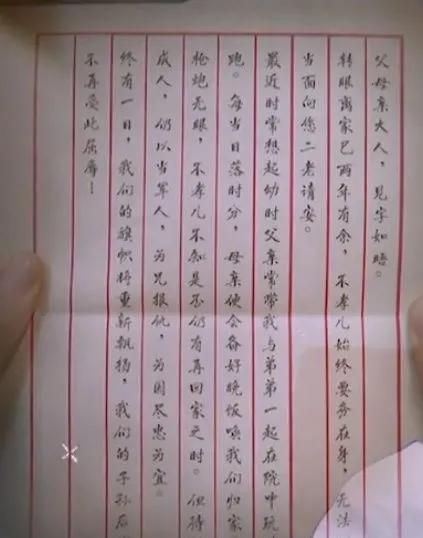 父母亲大人，见字如晤。
转眼离家已两年有余，不孝儿始终要务在身，无法
当面向您二老请安。
最近时常想起幼时父亲常带我与弟弟一起在院中玩
跑。每当日落时分，母亲便会备好晚饭唤我们归家
枪炮无眼，不孝儿不知是否仍有再回家之时。但待
成人，仍以当军人，为兄报仇，为国尽忠为宜。
终有一日，我们的旗帜将重新飘扬，我们的子孙后
不再受此屈辱！